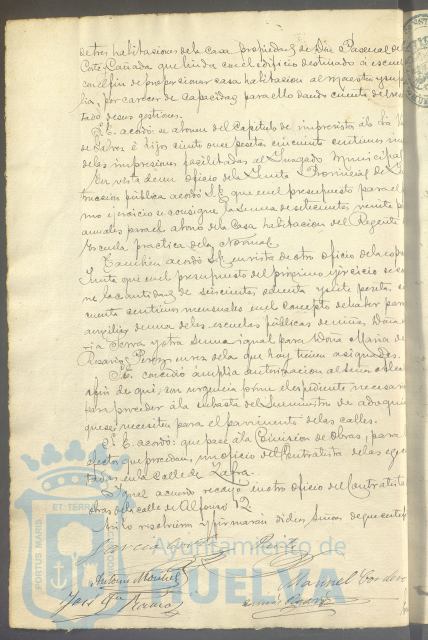 de tres habitaciones de la Casa propiedad de Don Pascual de
Corte Cañada que linda con el edificio destinado á escuela
con el fin de proporcionar casa habitacion al maestro y fami
lia, por carecer de capacidad para ello dando cuenta del resul
tado de sus gestiones.
S.E. acordó se abonen del Capitulo de imprevistos á la
de é hijos ciento pesetas cincuenta centimos
de las impresiones facilitadas al Juzgado Municipal
En vista de un oficio de la Junta Provincial de Ins
truccion pública acordó S.E. que en el presupuesto para el
mo ejercicio se consigne la suma de setecientas veinte
anuales para el abono de la Casa habitacion del Regente
Escuela practica de la Normal.
Tambien acordó S.E. en vista de otro oficio de la
Junta que en el presupuesto del próximo ejercicio se
ne la cantidad de seiscientas ochenta y siete pesetas
cuenta centimos mensuales en el concepto de haber para
auxiliar de una de las escuelas públicas de niñas Doña
ria Serra y otra suma igual para Doña Maria del
Rosario Perez en vez de la que hoy tienen asignadas.
S.E. concedió amplia autorizacion al Señor Alcalde
fin de que, con urgencia forme el espediente necesario
para proceder á la subasta del suministro de adoquines
que se necesiten para el pavimento de las calles.
S.E. acordó: que pase á la Comision de Obras, para
efectos que procedan, un oficio del Contratista de las
tadas en la Calle de Zafra.
Igual acuerdo recayó en otro oficio del Contratista
obras de la calle de Alfonso 12.
Asi lo resolvieron y firmarán dichos Señores de que certifico
Garcia
Antonio
Manuel Cordero
José Mª
Ayuntamiento de
HUELVA
PORTUS MARIS
ET TERRAE
CUSTODIA